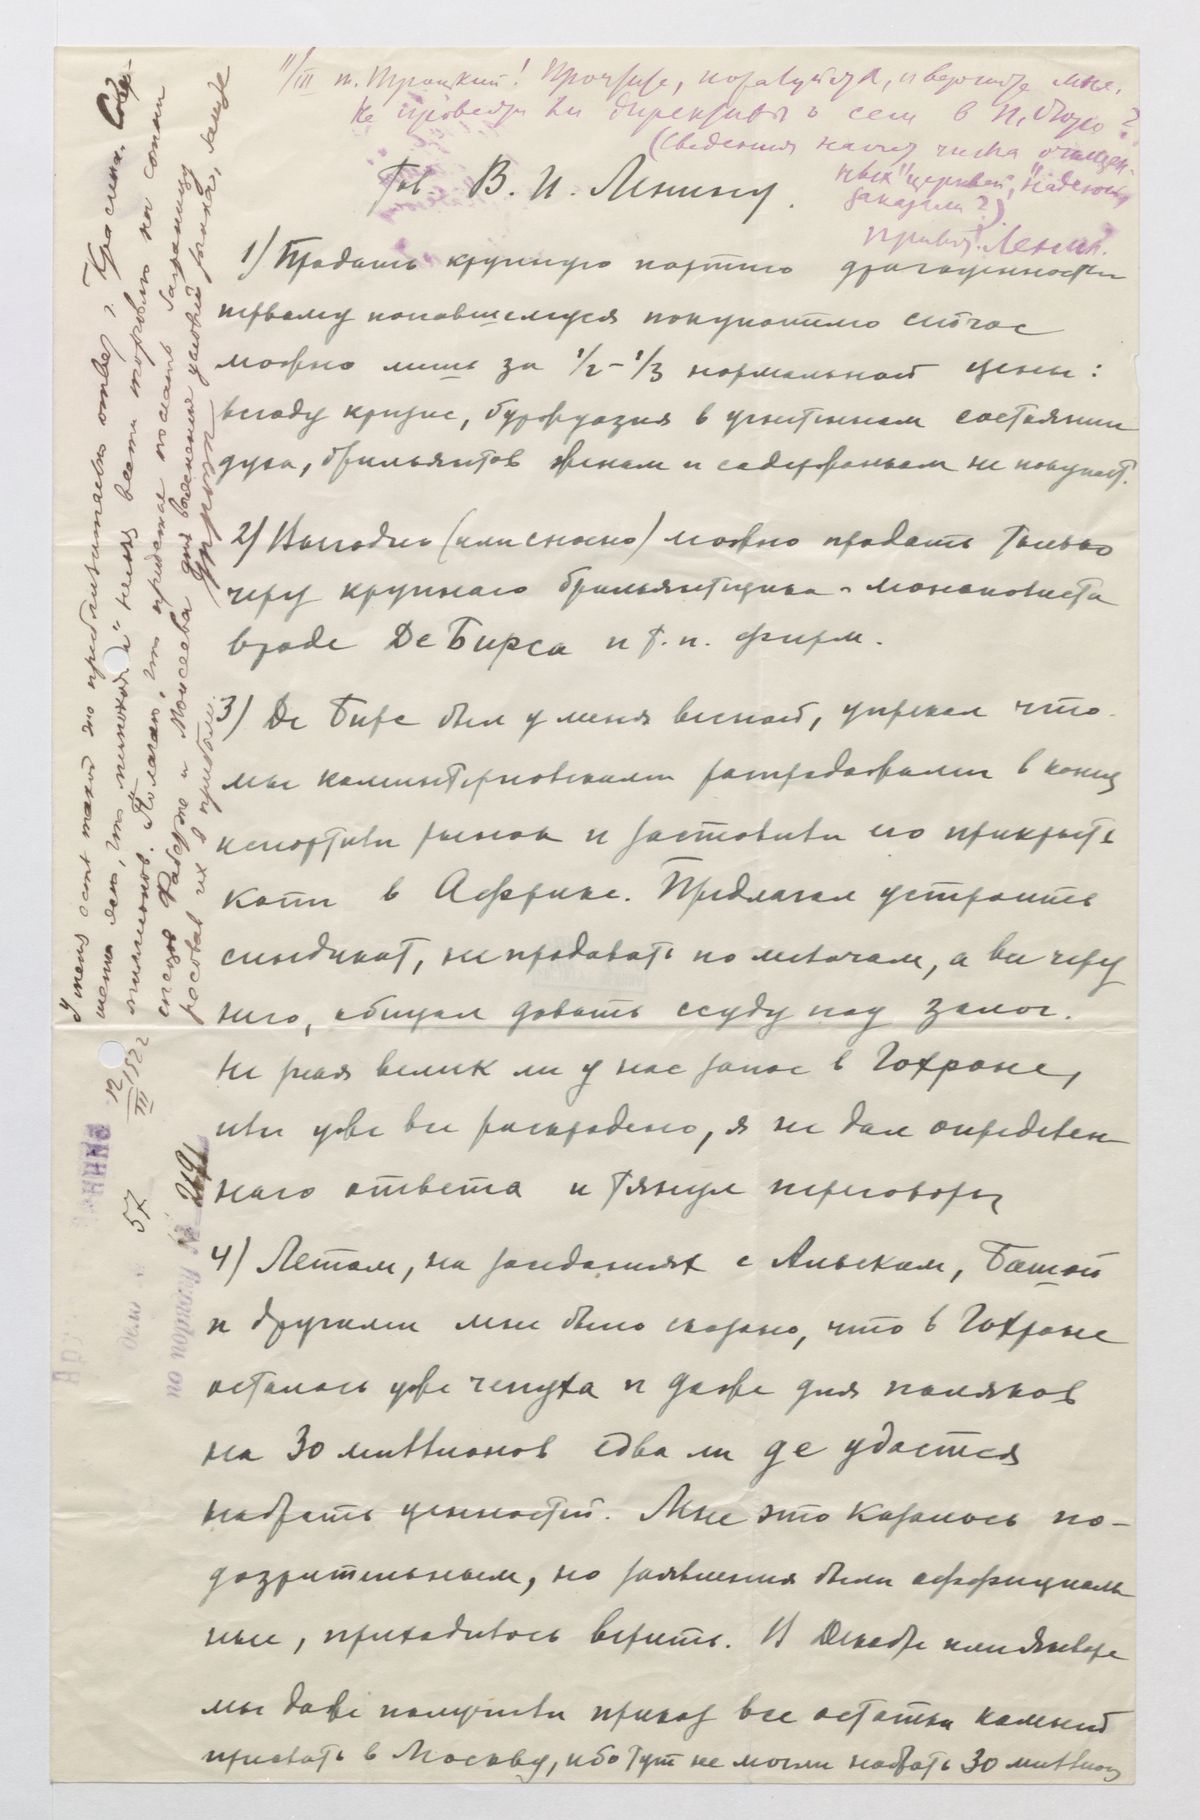 11/III т. Троцкий! Прочтите, пожалуйста, и верните мне.
Не провести ли директивы о сем в П. бюро?
(Сведения насчет числа "очищен-
ных" церквей, надеюсь,
заказали?)
Привет! Ленин.
Тов. В. И. Ленину.
1) Продать крупную партию драгоценностей
первому попавшемуся покупателю сейчас
можно лишь за 1/2–1/3 нормальной цены:
всюду кризис, буржуазия в угнетенном состоянии
духа, брильянтов женам и содержанкам не покупает.
2) Выгодно (или сносно) можно продать только
через крупного брильянтщика-монополиста
вроде Де Бирса и т. п. фирм.
3) Де Бирс был у меня весной, упрекал что
мы коминтерновскими распродажами в конец
испортили рынок и заставили его прикрыть
копи в Африке. Предлагал устроить
синдикат, не продавать по мелочам, а все через
него, обещал давать ссуду под залог.
Не зная велик ли у нас запас в Гохране,
или уже все раскрадено, я не дал определен-
ного ответа и тянул переговоры
4) Летом, на заседаниях с Альским, Башой
и другими мне было сказано, что в Гохране
осталась уже чепуха и даже для поляков
на 30 миллионов едва ли де удастся
набрать ценностей. Мне это казалось по-
дозрительным, но заявления были оффициаль
ные, приходилось верить. В Декабре или Январе
мы даже получили приказ все остатки камней
прислать в Москву, ибо тут не могли набрать 30 миллион
У меня есть такой же приблизительно ответ т. Красина. Совер-
шенно ясно, что нельзя вести торговлю на сотни
миллионов. Полагаю, что придется послать заграницу
спецов Фаберже и Моисеева для выяснения условий рынка,
Троцкий
12/III 1922
57